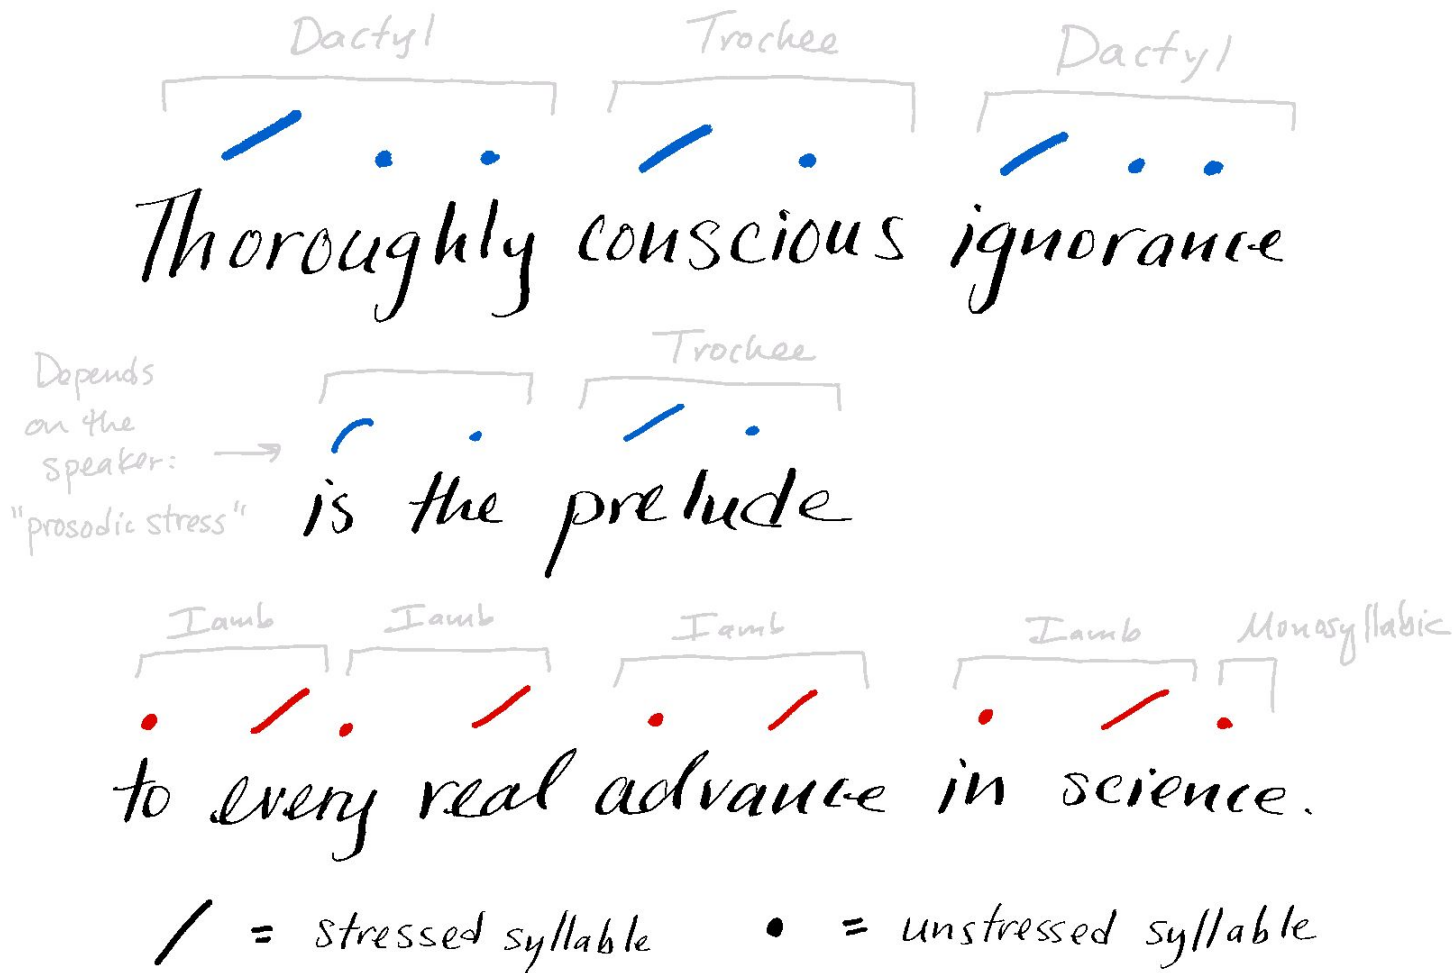 Dactyl Trochee Dactyl
Thoroughly conscious ignorance
Trochee
Depends
on the
speaker:
"prosodic stress"
is the prelude
Iamb Iamb Iamb Iamb Monosyllabic
to every real advance in science.
/ = stressed syllable • = unstressed syllable